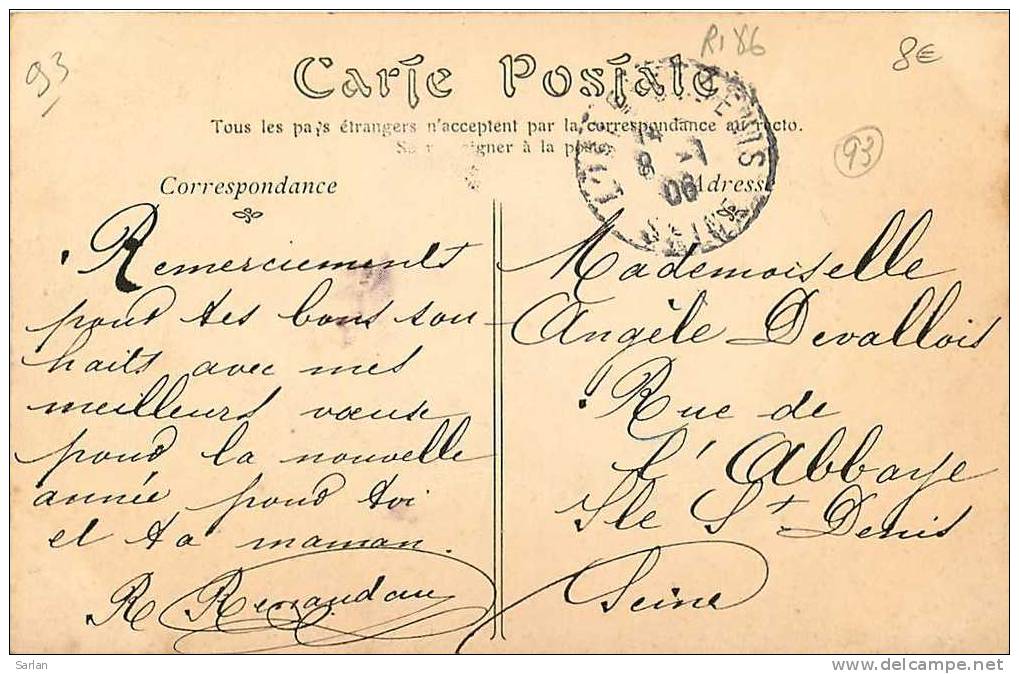 93
R186
8€
Carte Postale
Tous les pays étrangers n'acceptent par la correspondance au recto.
Se renseigner à la poste.
93
Correspondance
Adresse
Remerciements
pour tes bons sou
haits avec mes
meilleurs vœux
pour la nouvelle
année pour toi
et ta maman.
Mademoiselle
Angèle Devallois
Rue de
l'Abbaye
Ile St Denis
Seine
R
Sarlan
delcampe.net